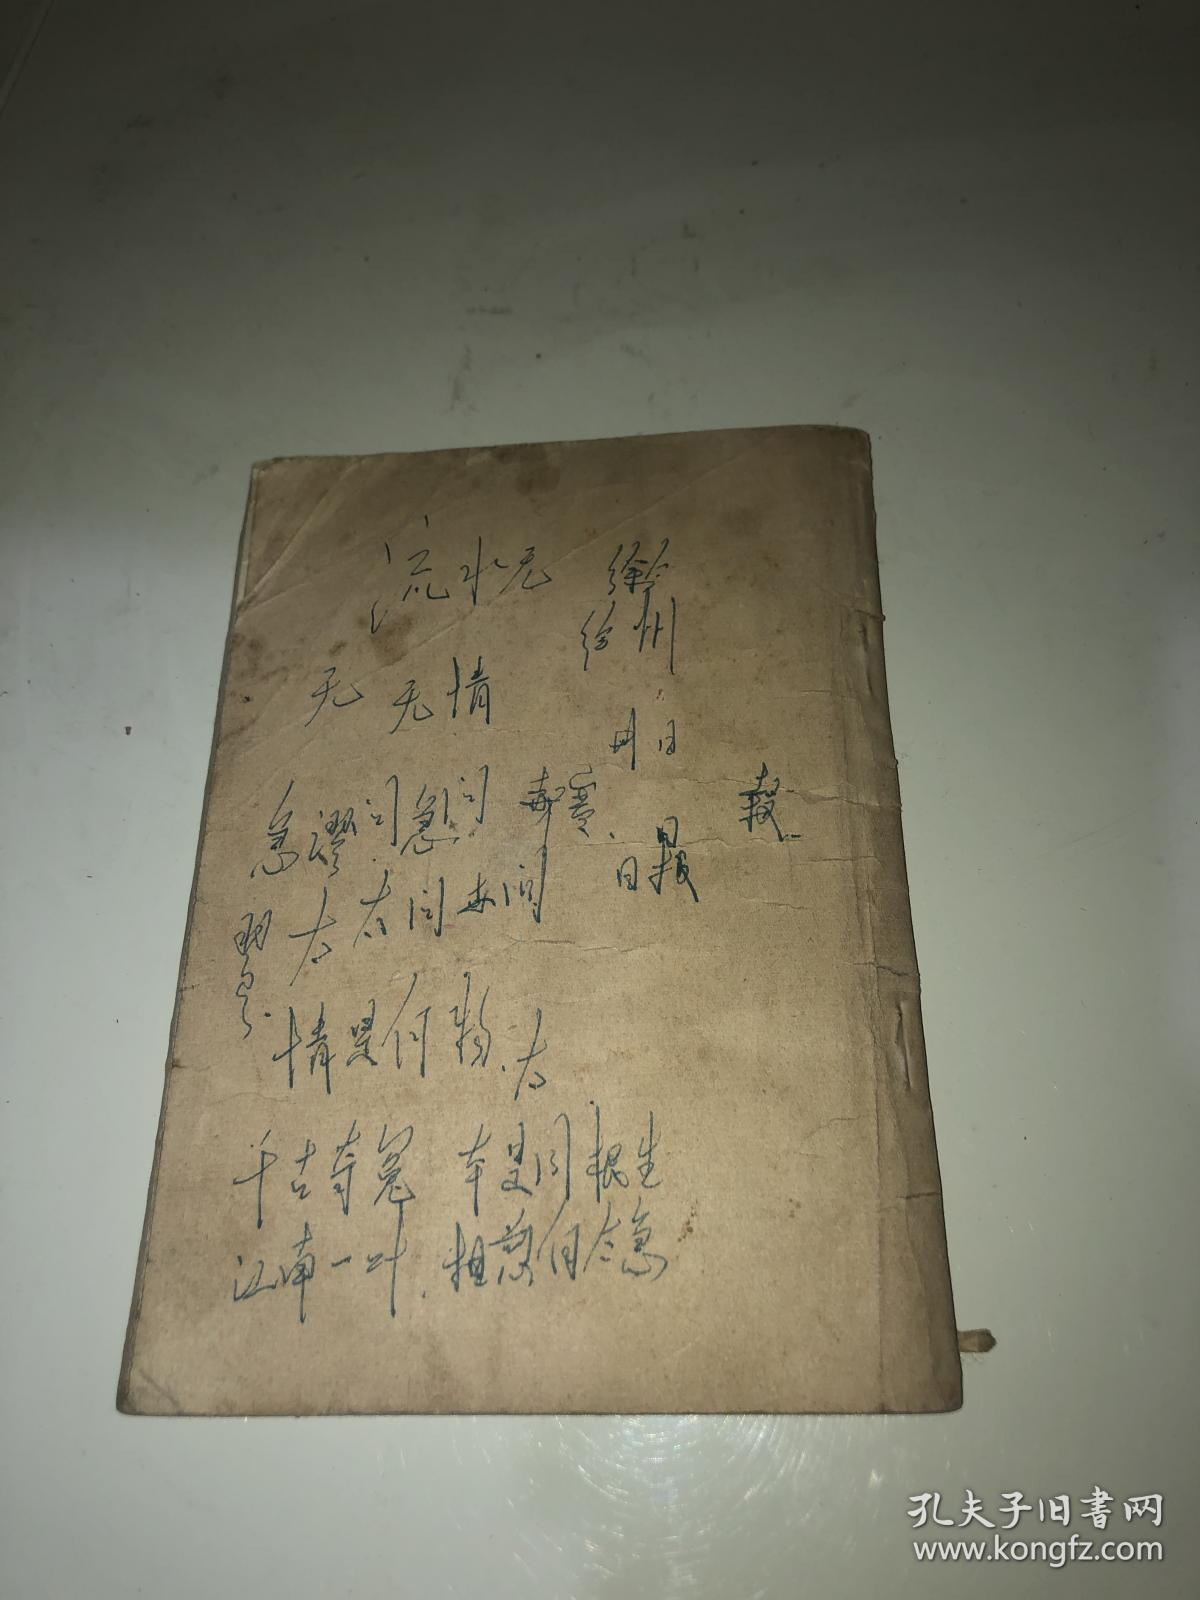 流水无
徐
徐州
无 无情
州日
急 谬 问 急 问
报
日报
太 太 问 太 问
情是何物 太
千古奇冤 本是同根生
江南一叶 相煎何太急
孔夫子旧书网
www.kongfz.com